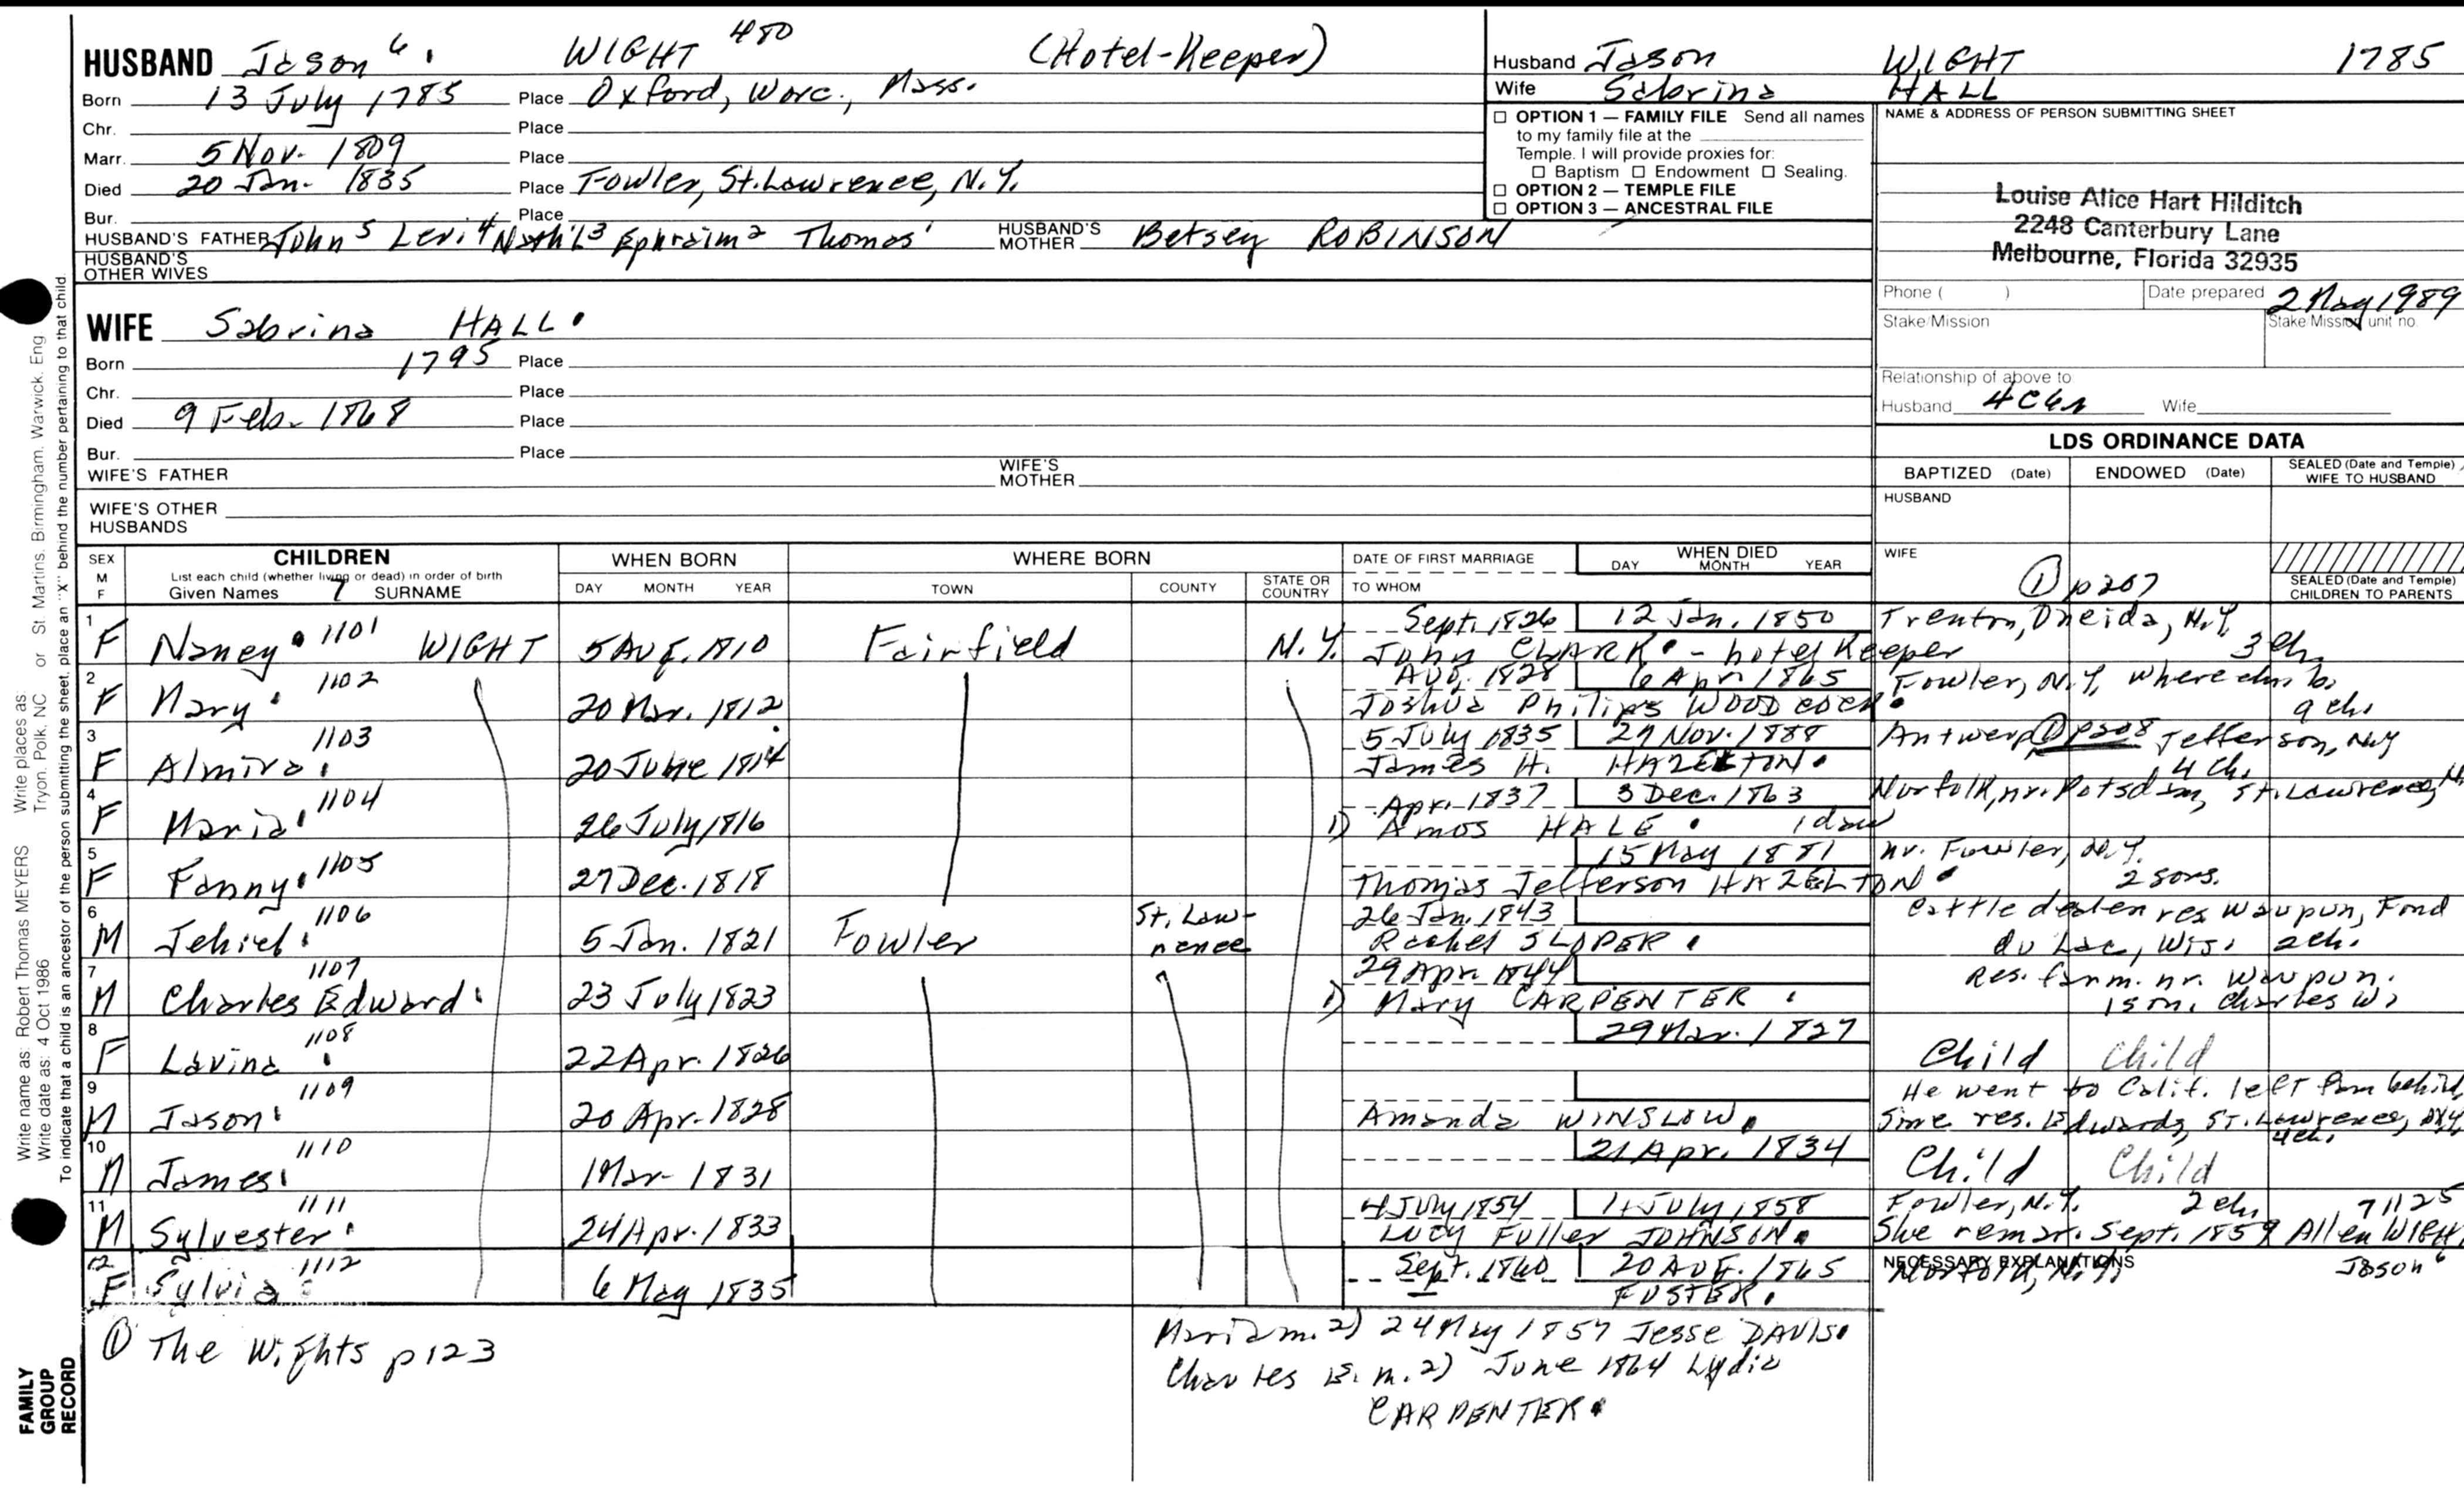 HUSBAND Jason 6. WIGHT 480 (Hotel-Keeper)
Born 13 July 1785 Place Oxford, Worc., Mass.
Chr. Place
Marr. 5 Nov. 1809 Place
Died 20 Jan. 1835 Place Fowler, St. Lawrence, N.Y.
Bur. Place
HUSBAND'S FATHER John 5 Levi 4 Nath'l 3 Ephraim 2 Thomas 1 HUSBAND'S MOTHER Betsey ROBINSON
HUSBAND'S OTHER WIVES
WIFE Sabrina HALL.
Born 1795 Place
Chr. Place
Died 9 Feb. 1868 Place
Bur. Place
WIFE'S FATHER WIFE'S MOTHER
WIFE'S OTHER HUSBANDS
Husband Jason WIGHT 1785
Wife Sabrina HALL
☐ OPTION 1 — FAMILY FILE Send all names
to my family file at the
Temple. I will provide proxies for:
☐ Baptism ☐ Endowment ☐ Sealing.
☐ OPTION 2 — TEMPLE FILE
☐ OPTION 3 — ANCESTRAL FILE
NAME & ADDRESS OF PERSON SUBMITTING SHEET
Louise Alice Hart Hilditch
2248 Canterbury Lane
Melbourne, Florida 32935
Phone ( ) Date prepared 2 May 1989
Stake/Mission Stake/Mission unit no.
Relationship of above to
Husband Wife
LDS ORDINANCE DATA
BAPTIZED (Date) ENDOWED (Date) SEALED (Date and Temple) WIFE TO HUSBAND
HUSBAND
WIFE
① p207
SEALED (Date and Temple) CHILDREN TO PARENTS
SEX M F CHILDREN WHEN BORN WHERE BORN DATE OF FIRST MARRIAGE WHEN DIED
List each child (whether living or dead) in order of birth
Given Names 7 SURNAME DAY MONTH YEAR TOWN COUNTY STATE OR COUNTRY TO WHOM DAY MONTH YEAR
1 F Nancy. 1101 WIGHT 5 Aug. 1810 Fairfield N.Y. Sept. 1826 12 Jan. 1850 Trenton, Oneida, N.Y.
John CLARK. - hotel Keeper 3 ch.
2 F Mary. 1102 20 Mar. 1812 Aug. 1828 6 Apr 1865 Fowler, N.Y, where chn b.
Joshua Philips WOODCOCK. 9 ch.
3 F Almira. 1103 20 June 1814 5 July 1835 29 Nov. 1888 Antwerp ① p208 Jefferson, NY
James H. HAZELTON. 4 ch.
4 F Maria. 1104 26 July 1816 Apr. 1837 3 Dec. 1863 Norfolk, nr. Potsdam, St. Lawrence, N
1) Amos HALE. 1 dau
5 F Fanny. 1105 27 Dec. 1818 15 May 1881 nr. Fowler, N.Y.
Thomas Jefferson HAZELTON. 2 sons.
6 M Jehiel. 1106 5 Jan. 1821 Fowler St. Lawrence 26 Jan. 1843 Cattle dealer res Waupun, Fond
Rachel SLOPER. du Lac, Wis. 2 ch.
7 M Charles Edward. 1107 23 July 1823 29 Apr. 1844 Res. farm. nr. Waupun.
1) Mary CARPENTER. 1 son. Charles W.
8 F Lavina. 1108 22 Apr. 1826 29 Mar. 1827
Child Child
9 M Jason. 1109 20 Apr. 1828 He went to Calif. left fam behind,
Amanda WINSLOW. Since res. Edwards, St. Lawrence, NY, 4 ch.
10 M James. 1110 1 Mar. 1831 21 Apr. 1834
Child Child
11 M Sylvester. 1111 24 Apr. 1833 4 July 1854 14 July 1858 Fowler, N.Y. 2 ch.
Lucy Fuller JOHNSON. She remar. Sept. 1859 Allen WIGHT 71125
Jason 6
12 F Sylvia. 1112 6 May 1835 Sept. 1860 20 Aug. 1865 NECESSARY EXPLANATIONS
FOSTER. Norfolk, N.Y.
① The Wights p 123
Maria m. 2) 24 May 1857 Jesse DAVIS.
Charles E. m. 2) June 1864 Lydia
CARPENTER.
Write name as: Robert Thomas MEYERS Write places as
Write date as: 4 Oct 1986 Tryon, Polk, NC or St. Martins, Birmingham, Warwick, Eng
To indicate that a child is an ancestor of the person submitting the sheet, place an "X" behind the number pertaining to that child.
FAMILY
GROUP
RECORD